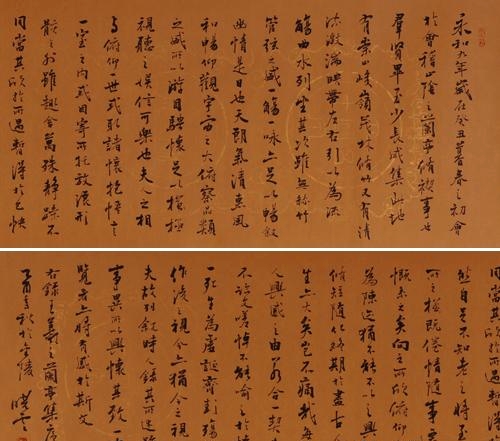 永和九年歲在癸丑暮春之初會
於會稽山陰之蘭亭脩禊事也
群賢畢至少長咸集此地
有崇山峻嶺茂林脩竹又有清
流激湍映帶左右引以為流
觴曲水列坐其次雖無絲竹
管弦之盛一觴一詠亦足以暢敘
幽情是日也天朗氣清惠風
和暢仰觀宇宙之大俯察品類
之盛所以遊目騁懷足以極
視聽之娛信可樂也夫人之相
與俯仰一世或取諸懷抱悟言
一室之内或因寄所託放浪形
骸之外雖趣舍萬殊靜躁不
同當其欣於所遇暫得於己快
同當其欣於所遇暫得於
然自足不知老之將至
所之既倦情隨事
慨係之矣向之所欣俯仰
為陳迹猶不能不以之興
脩短隨化終期於盡古
生亦大矣豈不痛哉每
人興感之由若合一契
不臨文嗟悼不能喻之於
一死生為虛誕齊彭殤
作後之視今亦猶今之視
夫故列敘時人錄其所述
事異所以興懷其致一
覽者亦將有感於斯文
右錄王羲之蘭亭集序
秋於金陵